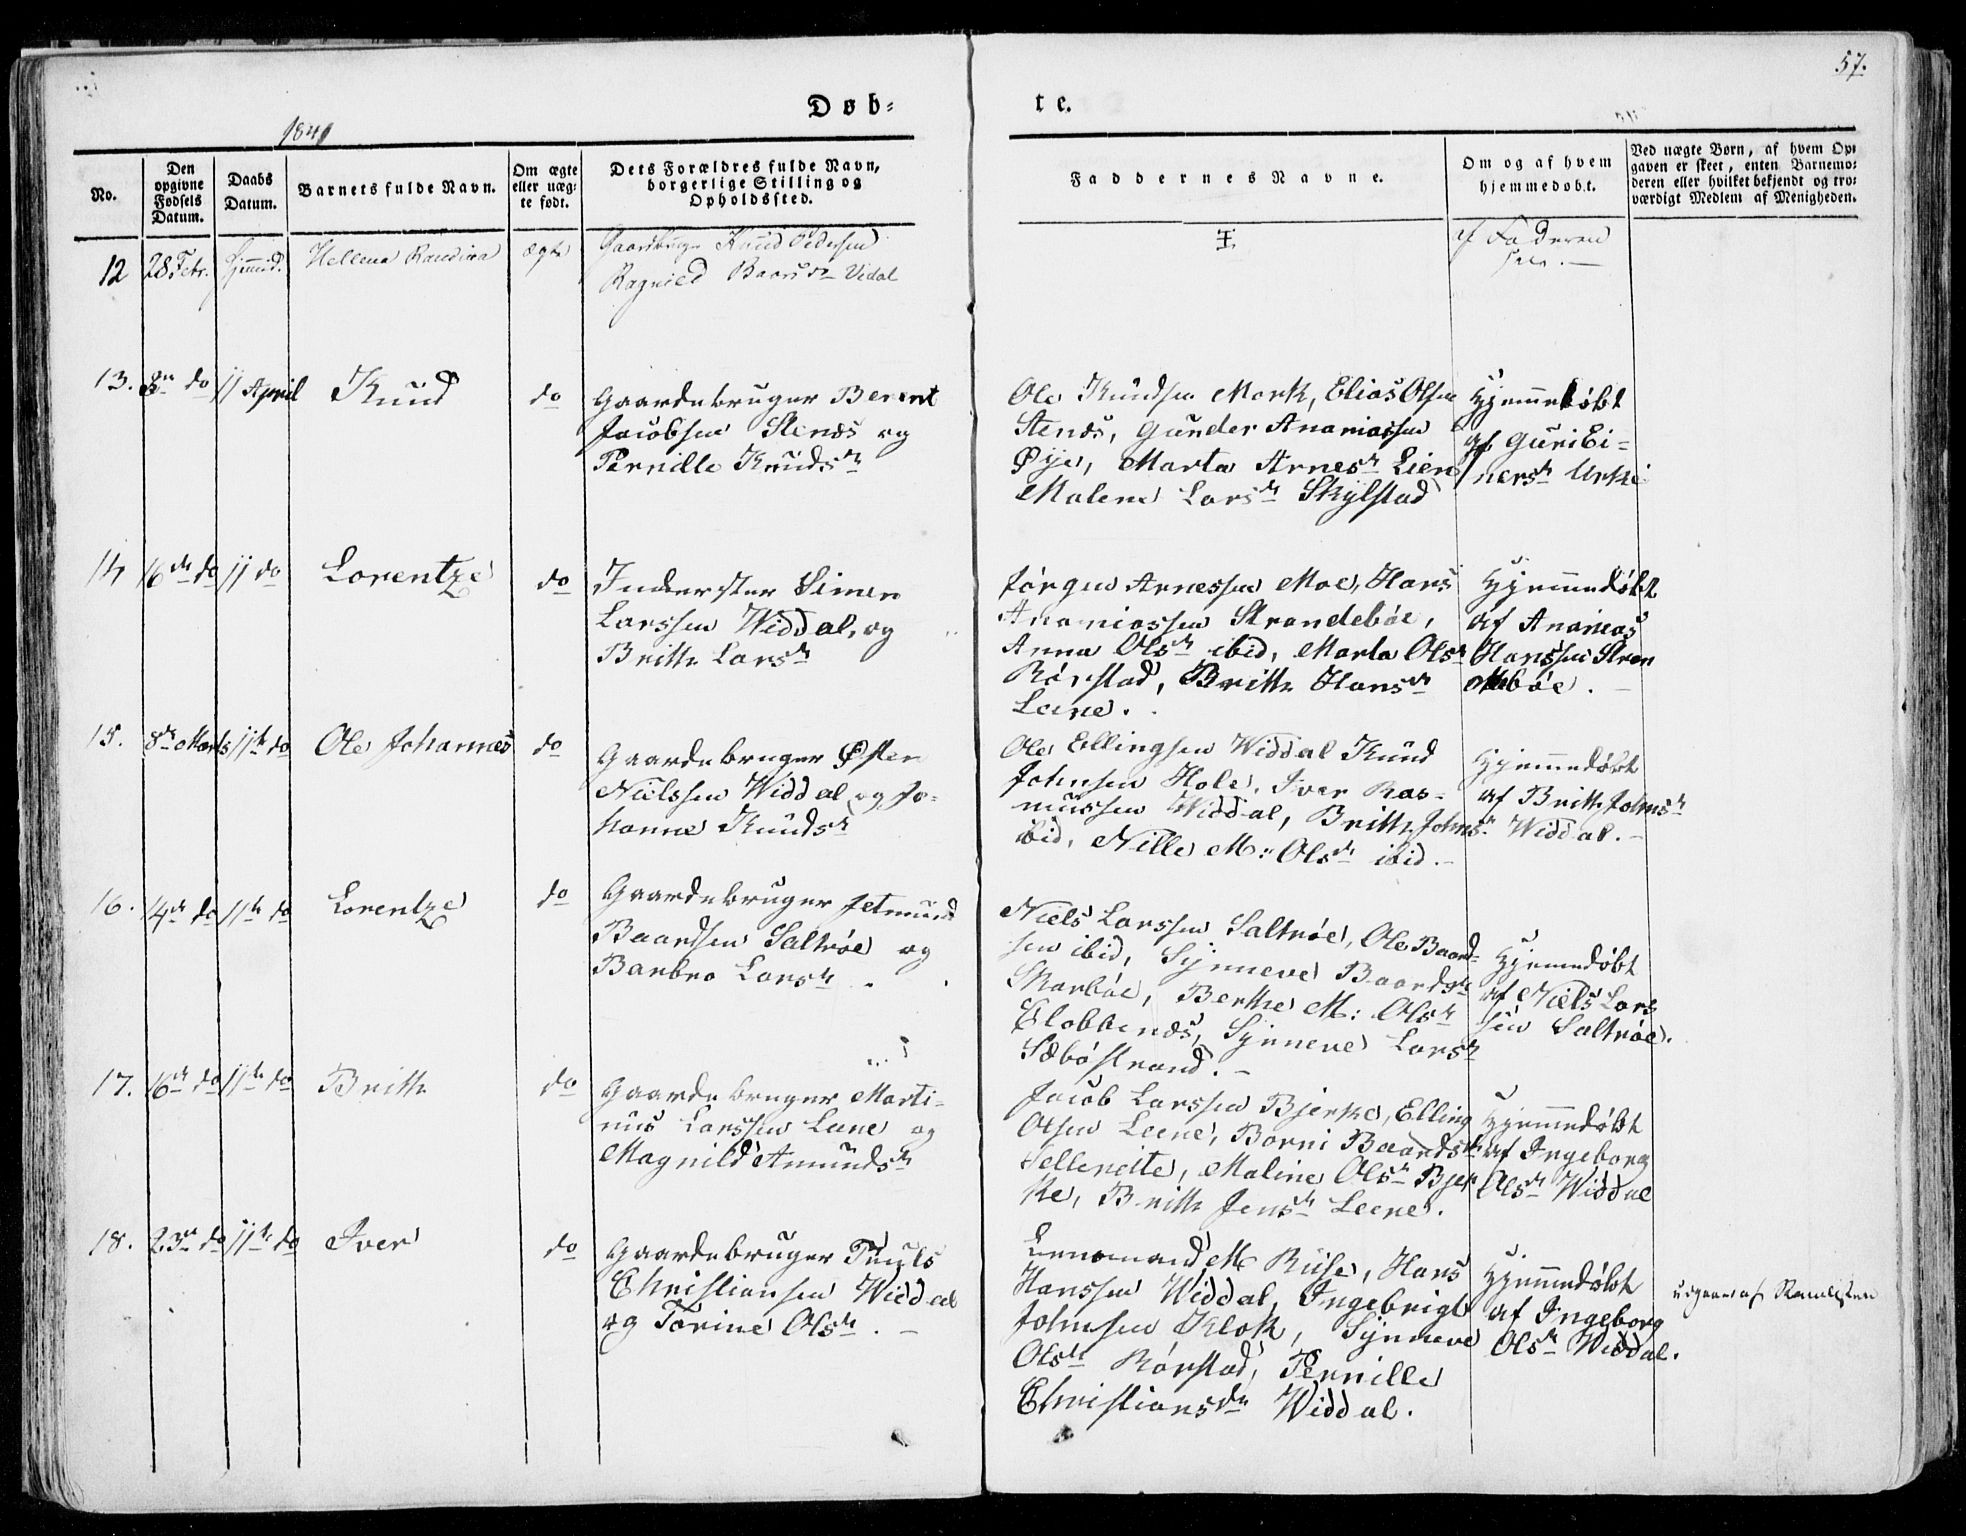 57.
Døb-
te.
1841
No.
Den
opgivne
Fødsels
Datum.
Daabs
Datum.
Barnets fulde Navn.
Om ægte
eller uæg-
te født.
Dets Forældres fulde Navn,
borgerlige Stilling og
Opholdssted.
Faddernes Navne.
Om og af hvem
hjemmedøbt.
Ved uægte Børn, af hvem Op-
gaven er skeet, enten Barnemo-
deren eller hvilket bekjendt og tro-
værdigt Medlem af Menigheden.
12
28 Febr.
Hjemmd.
Hellena Randina
ægte
Gaardbruger Knud Pedersen
Ragnild Baardsdr Vidal
af Faderen
13.
8de do
11 April
Knud
do
Gaardebruger Berent
Jacobsen Stenes og
Pernille Knudsdr
Ole Knudsen Mork, Elias Olsen
Stenes, Gunder Ananiassen
Øije, Marta Arnesdr Lien
Malene Larsdr Skylstad
Hjemmedøbt
af Guri Ei-
nersdr Urke
14
16de do
11 do
Lorentze
do
Inderster Simen
Larssen Widdal, og
Brithe Larsdr
Jørgen Arnessen Moe, Hans
Ananiassen Strandebøe,
Anna Olsdr ibid, Marta Olsdr
Rørstad, Brithe Hansdr
Leene.
Hjemmedøbt
af Ananias
Hanssen Stran
debøe.
15.
8de Marts
11te do
Ole Johannes
do
Gaardebruger Østen
Nielssen Widdal og Jo-
hanne Knudsdr
Ole Ellingsen Widdal Knud
Johnsen Hole, Iver Ras-
mussen Widdal, Brithe Johnsdr
ibid, Nille M: Olsdr ibid.
Hjemmedøbt
af Brithe Johnsdr
Widdal.
16.
14de do
11te do
Lorentze
do
Gaardebruger Jetmund
Baardsen Saltrøe og
Barbro Larsdr
Niels Larssen Saltrøe, Ole Baard-
sen ibid, Synneve Baardsdr
Skarbøe, Berthe M: Olsdr
Clobbenæs, Synneve Larsdr
Sæbøstrand.
Hjemmedøbt
af Niels Lars
sen Saltrøe.
17.
16de do
11te do
Brithe
do
Gaardebruger Marti-
nus Larssen Leene og
Magnild Amundsdr
Jacob Larssen Bjerke, Elling
Olsen Leene, Borni Baardsdr
Sellereite, Maline Olsdr Bjer
ke, Brithe Jensdr Leene.
Hjemmedøbt
af Ingeborg
Olsdr Widdal
18.
23de do
11te do
Iver
do
Gaardebruger Truuls
Christiansen Widdal
og Torine Olsdr.
Lensmand M Riise, Hans
Hanssen Widdal, Ingebrigt
Johnsen Klok, Synneve
Olsdr Rørstad, Pernille
Christiansdr Widdal.
Hjemmedøbt
af Ingeborg
Olsdr Widdal.